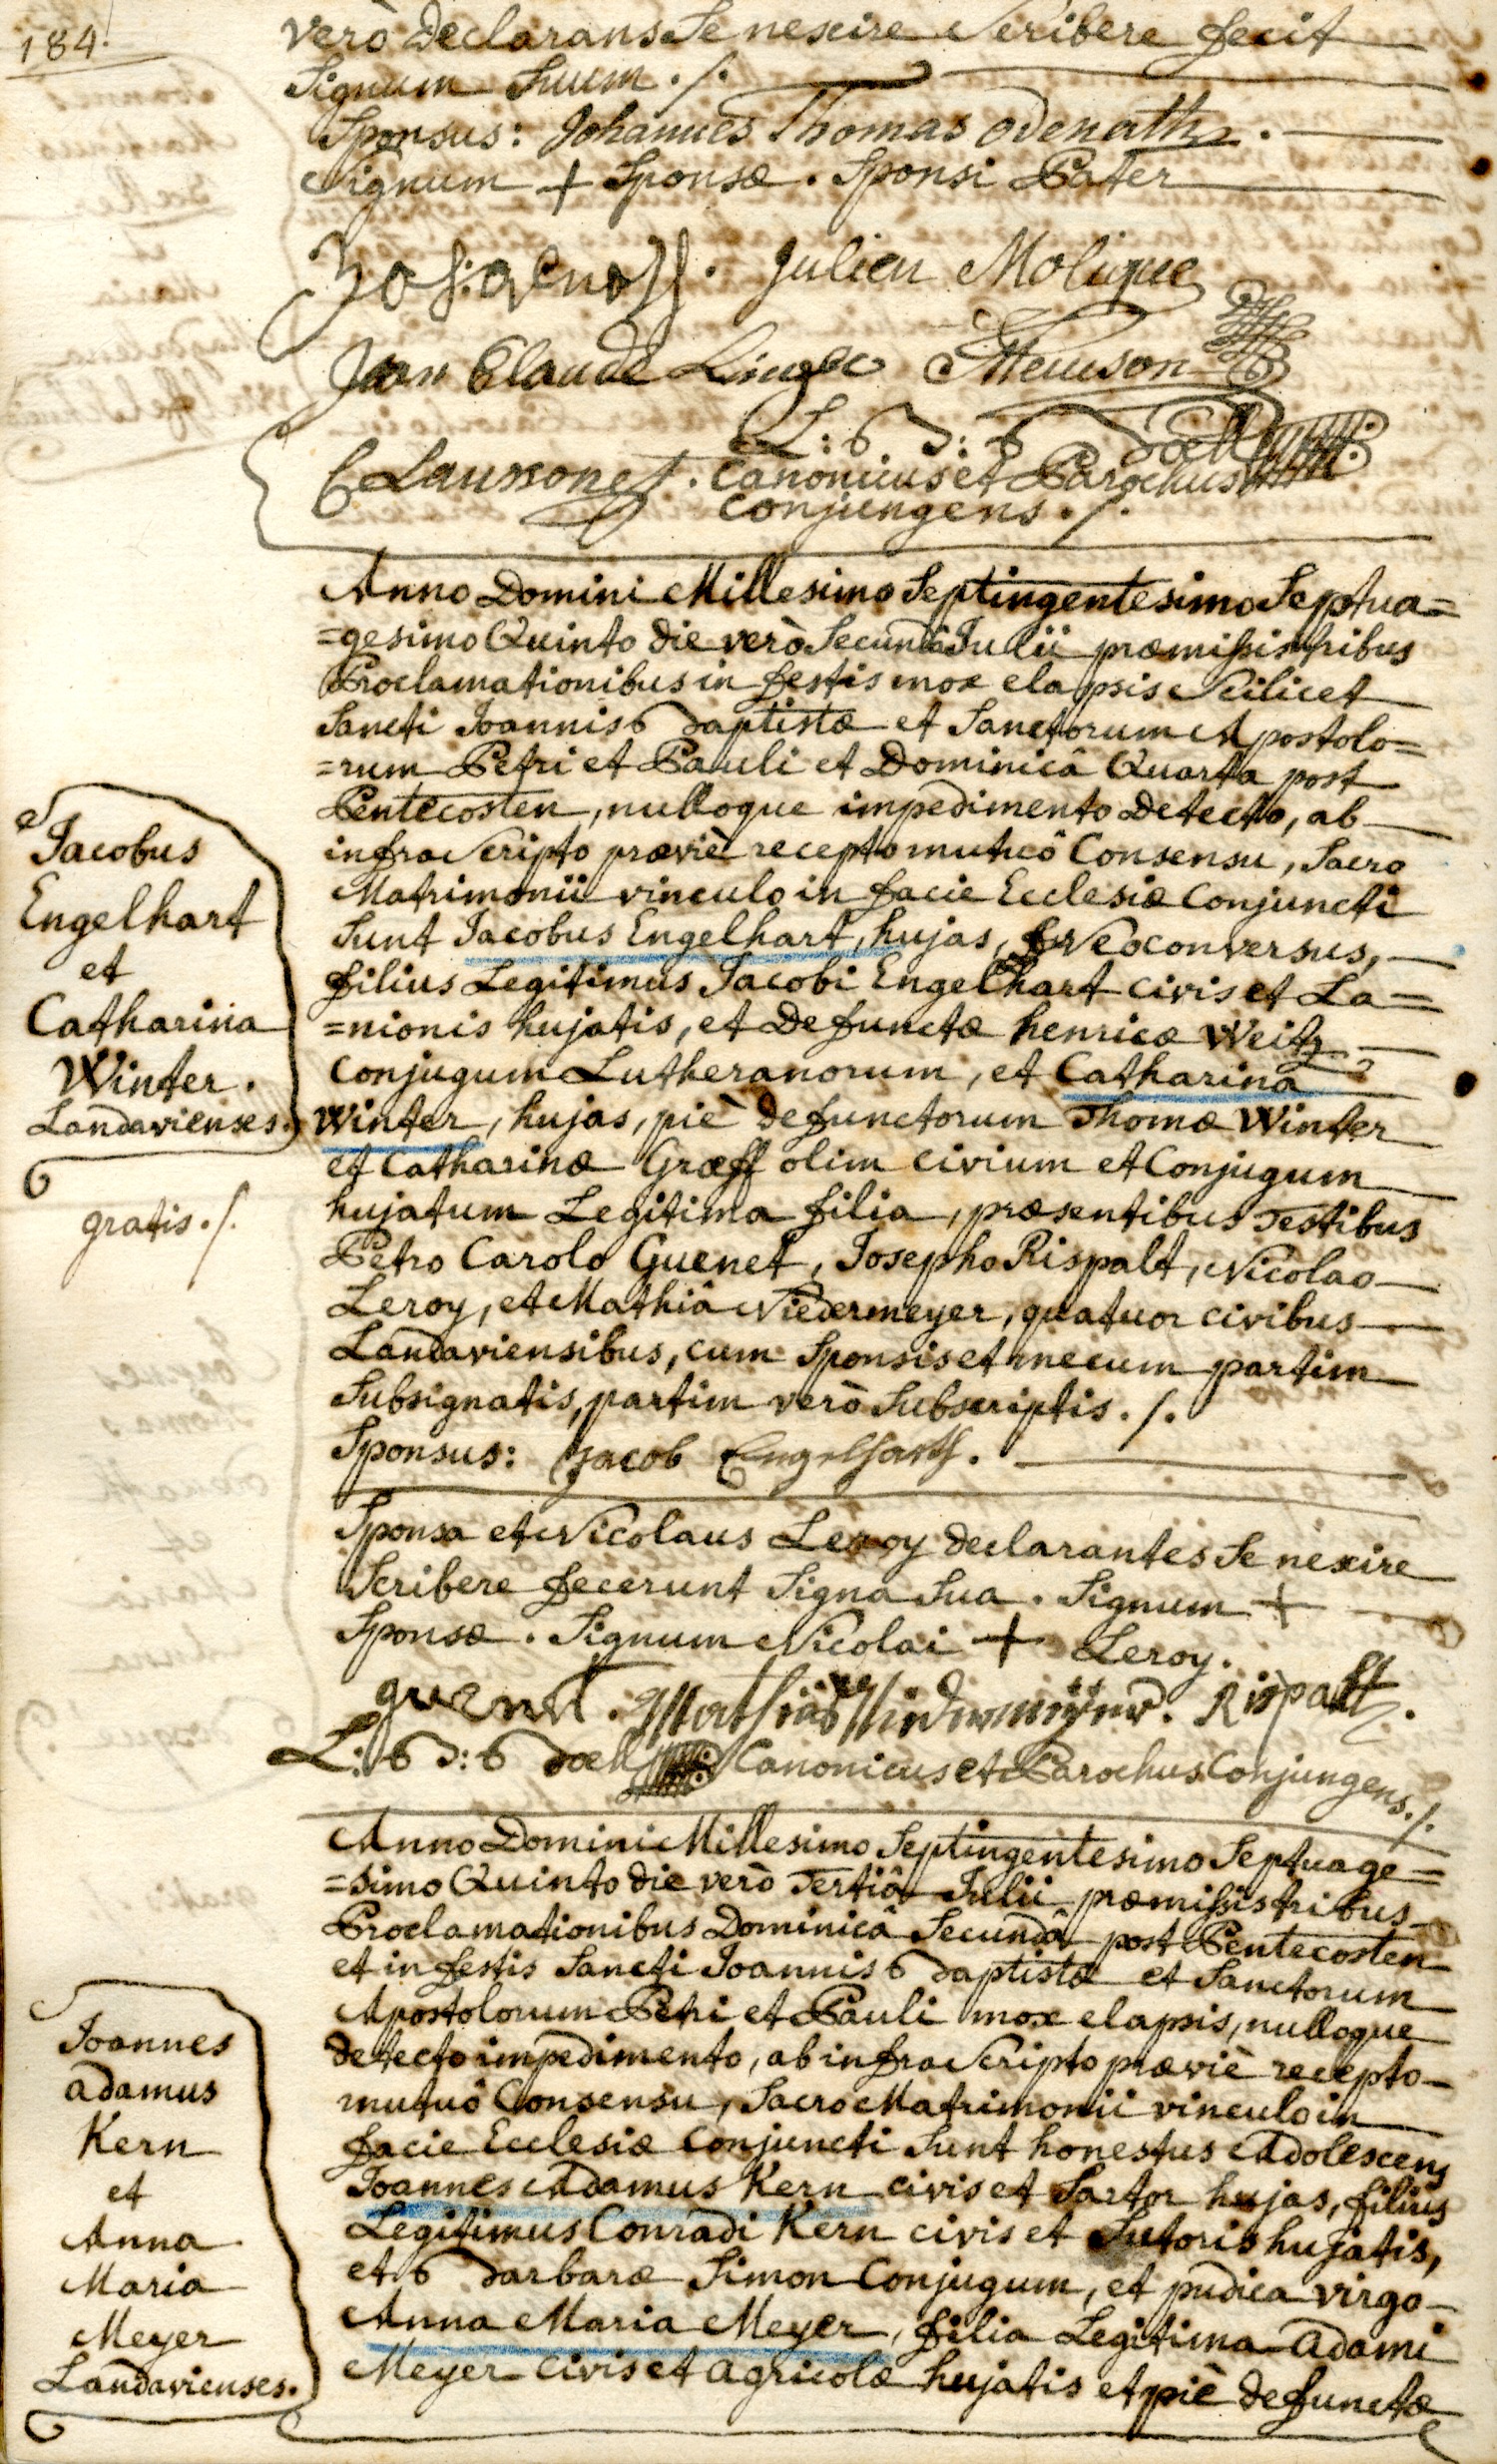 184.
verò declarans Se nescire Scribere fecit
Signum Suum ./.
Sponsus: Johannes Thomas Odenath.
Signum + Sponsæ. Sponsi Pater
Julien Molique
Jean Claude
Meuson
L: B D: B Doell
C Laussonet. Canonicus et Parochus
Conjungens ./.
Anno Domini Millesimo Septingentesimo Septua=
=gesimo Quinto die verò Secundâ Julii præmissis tribus
Proclamationibus in festis mox elapsis Scilicet
Sancti Joannis Baptistæ et Sanctorum Apostolo=
=rum Petri et Pauli et Dominicâ Quarta post
Pentecosten, nulloque impedimento detecto, ab
infra Scripto præviè recepto mutuô Consensu, Sacro
Matrimonii vinculo in facie Ecclesiæ Conjuncti
Sunt Jacobus Engelhart, hujas, Neoconversus,
filius Legitimus Jacobi Engelhart civis et La=
=nionis hujatis, et defunctæ henricæ Weitz
Conjugum Lutheranorum, et Catharina
Winter, hujas, piè defunctorum Thomæ Winter
et Catharinæ Græff olim civium et Conjugum
hujatum Legitima filia, præsentibus Testibus
Petro Carolo Guenet, Josepho Rispalt, Nicolao
Leroy, et Mathiâ Niedermeyer, quatuor civibus
Landaviensibus, cum Sponsis et mecum partim
Subsignatis, partim verò Subscriptis ./.
Sponsus: Jacob Engelharth.
Sponsa et Nicolaus Leroy declarantes Se nescire
Scribere fecerunt Signa Sua. Signum +
Sponsæ. Signum Nicolai + Leroy.
guenet. Mathias Nidermeÿer. Rispalt.
L: B D: B Doell Canonicus et Parochus Conjungens ./.
Jacobus
Engelhart
et
Catharina
Winter.
Landavienses.
gratis ./.
Anno Domini Millesimo Septingentesimo Septuage=
=simo Quinto die verò Tertiâ Julii præmissis tribus
Proclamationibus Dominicâ Secundâ post Pentecosten
et in festis Sancti Joannis Baptistæ et Sanctorum
Apostolorum Petri et Pauli mox elapsis, nulloque
detecto impedimento, ab infra Scripto præviè recepto
mutuô Consensu, Sacro Matrimonii vinculo in
facie Ecclesiæ Conjuncti Sunt honestus Adolescens
Joannes Adamus Kern civis et Sartor hujas, filius
Legitimus Conradi Kern civis et Sutoris hujatis,
et Barbaræ Simon Conjugum, et pudica virgo
Anna Maria Meyer, filia Legitima Adami
Meyer civis et agricolæ hujatis et piè defunctæ
Joannes
adamus
Kern
et
Anna
Maria
Meyer
Landavienses.